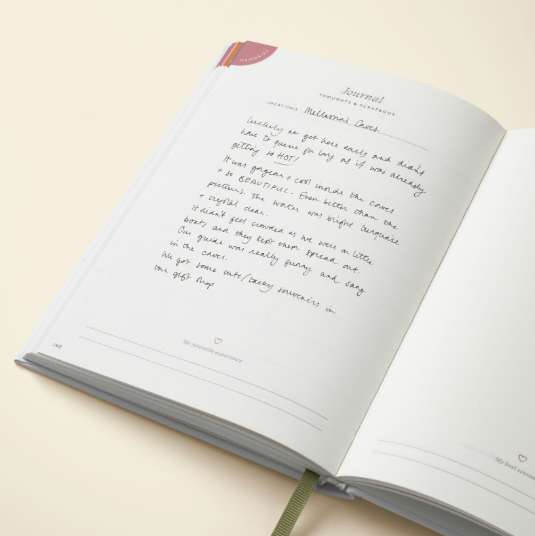 MEMORIES
Journal
THOUGHTS & SCRAPBOOK
LOCATIONS Melissani Caves
Luckily we got here early and didn't
have to queue for long as it was already
getting so HOT!
It was gorgeous + cool inside the caves
+ so BEAUTIFUL. Even better than the
pictures. The water was bright turquoise
+ crystal clear.
It didn't feel crowded as we were in little
boats and they kept them spread out.
Our guide was really funny and sang
in the caves.
We got some cute/tacky souvenirs in
the gift shop
My favourite experience
My best